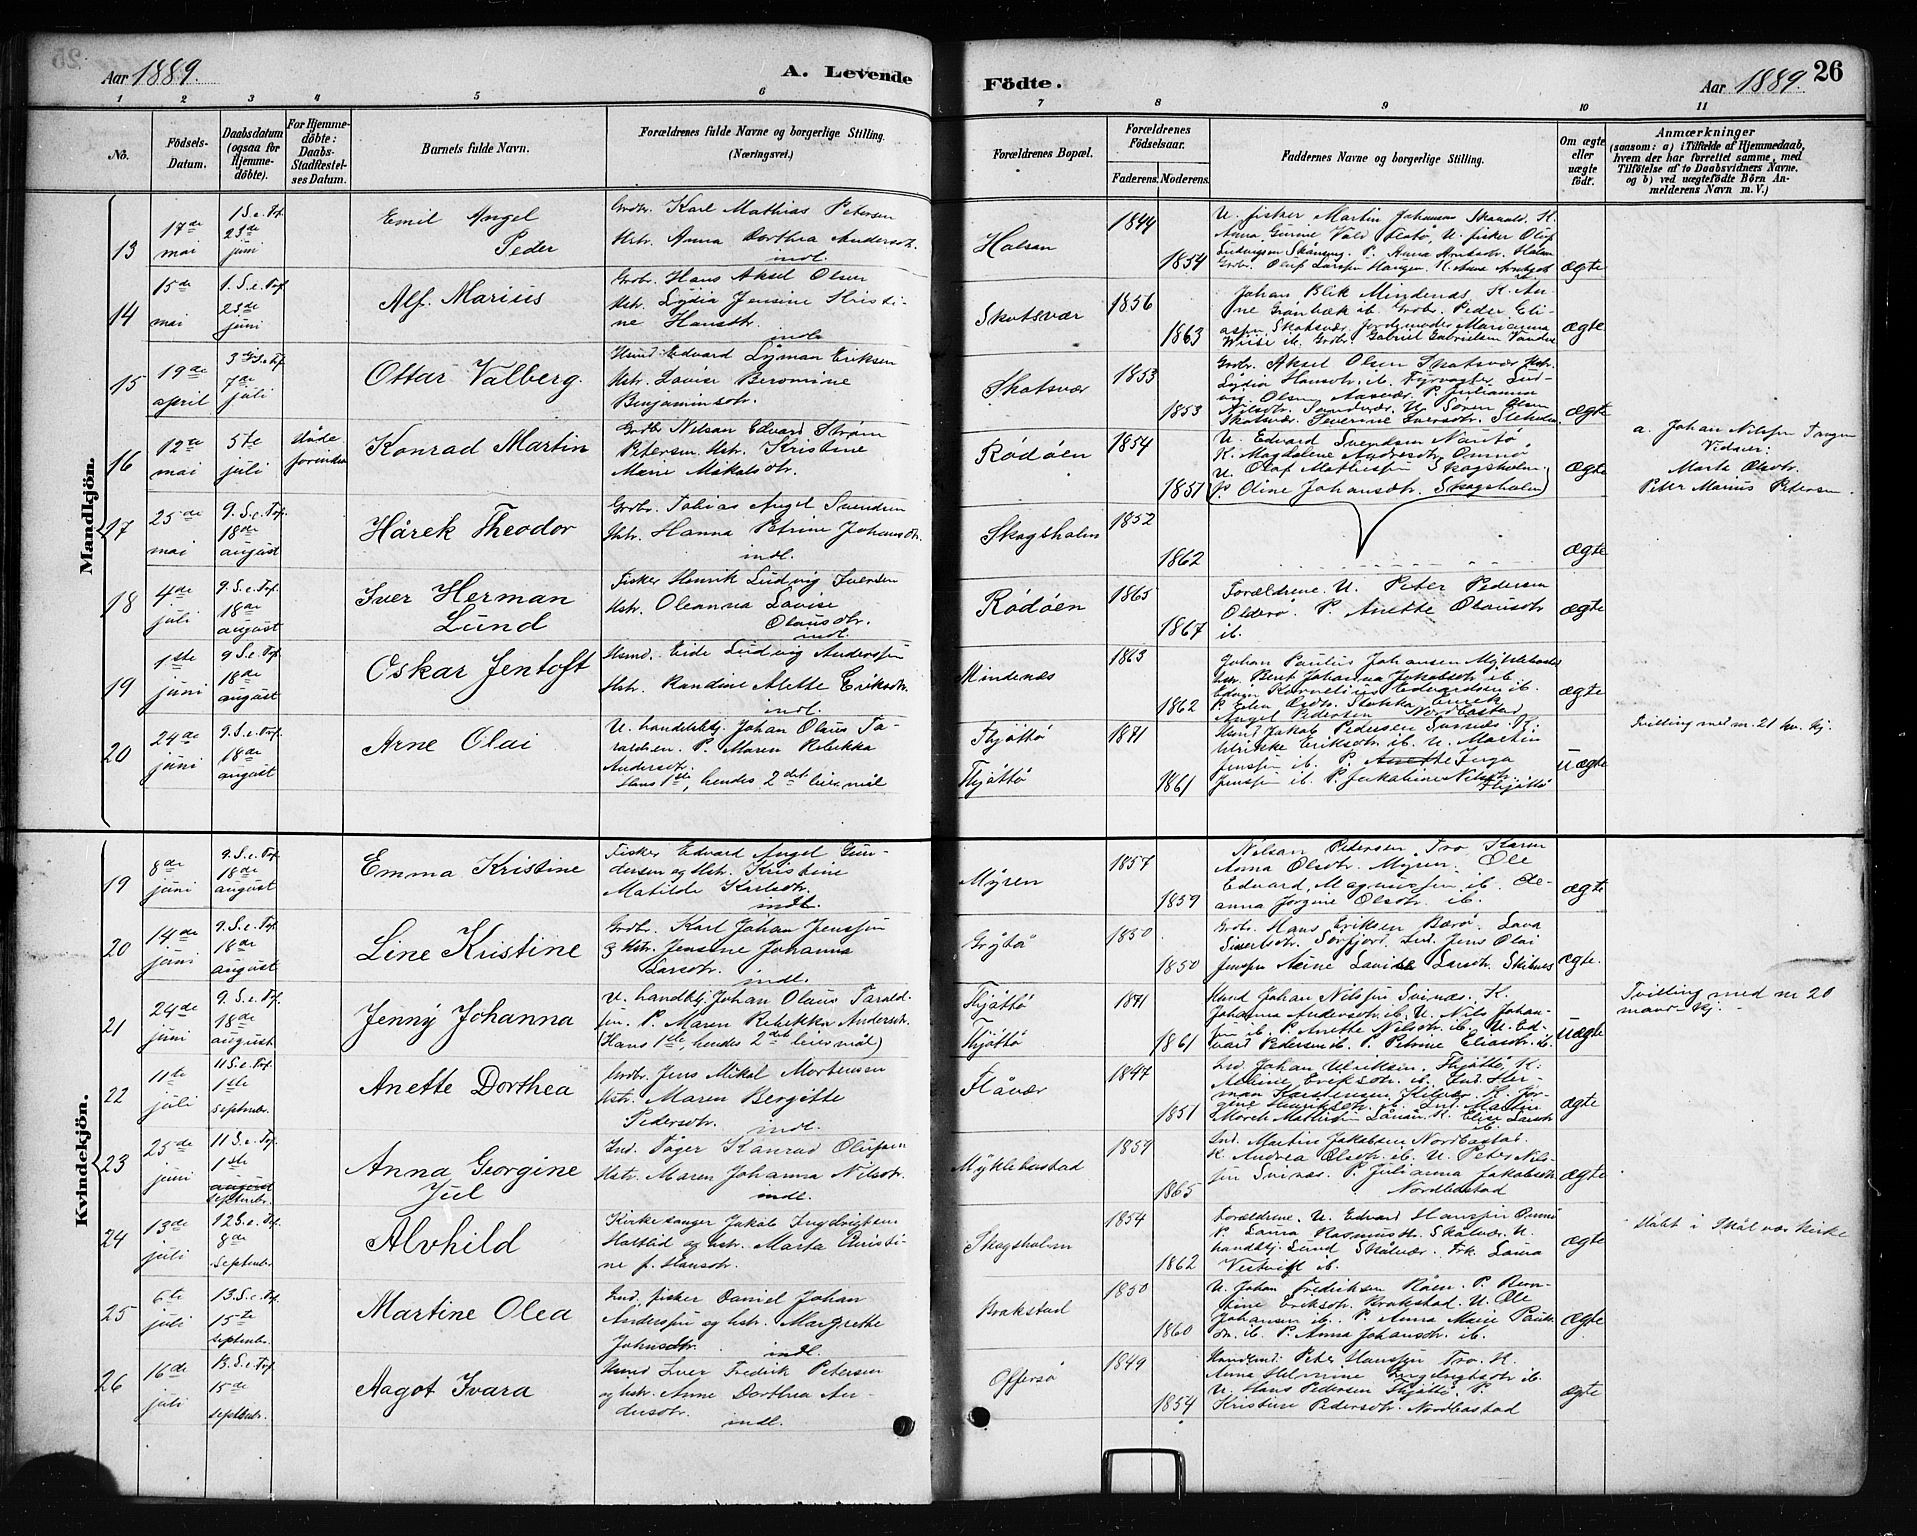 Aar 1889.
A. Levende
Födte.
Aar 1889.
26
1 2 3 4 5 6 7 8 9 10 11
No.
Födsels-Datum.
Daabsdatum (ogsaa for Hjemmedöbte).
For Hjemmedöbte: Daabs-Stadfestelses Datum.
Barnets fulde Navn.
Forældrenes fulde Navne og borgerlige Stilling. (Næringsvei.)
Forældrenes Bopæl.
Forældrenes Födselsaar.
Faderens. Moderens.
Faddernes Navne og borgerlige Stilling.
Om ægte eller uægte födt.
Anmærkninger
(saasom: a) i Tilfælde af Hjemmedaab, hvem der har forrettet samme, med Tilföielse af to Daabsvidners Navne, og b) ved uægtefödte Börn Anmelderens Navn m. V.)
Mandkjön.
13 17de mai 1 S.e.Tref. 23de juni
Emil Angel Peder
Grdbr. Karl Mathias Petersen
Hstr. Anna Dorthea Andersdtr. indl.
Halsan 1844 1854
U. fisker Martin Johansen K.
ægte
14 15de mai 1. S.e.Tref. 23de juni
Alf Marius
Grdbr. Hans Aksel Olsen
Hstr. Lydia Jensine Kristine Hansdtr. indl.
Skotsvær 1856 1863
Johan Blik Mindenæs, K. Ane Grönbæk ib. Grdbr. Peder Eliassen Skotsvær, Jordemoder Marianna
ægte
15 19de april 3 S.e.Tref. 7de juli
Ottar Valberg.
Hsmd. Edvard Lyman Eriksen
Hstr. Lovise Beromine
Benjaminsdtr.
Skotsvær 1853 1853
Grdbr. Aksel Olsen Skotsvær Hstr.
Lydia Hansdtr. ib.
ægte
16 12te mai 5te juli döde forinden
Konrad Martin
Grdbr. Nelsan Edvard Ström
Petersen. Hstr. Kristine
Marie Mikalsdtr.
Rödöen 1854 1851
U. Edvard Svendsen
K. Magdalene Andersdtr.
U. Olaf Mathissen Skogsholm.
P. Oline Johansdtr. Skogsholm
ægte
a. Johan Nilssen Tangen
Vidner:
Marte Olsdtr.
Peter Marius Petersen.
17 25de mai 9. S.e.Tref. 18de august
Hårek Theodor
Grdbr. Tobias Angel Svendsen
Hstr. Hanna Petrine Johansdtr. indl.
Skogsholm 1852 1862
ægte
18 4de juli 9. S.e.Tref. 18de august
Iver Herman Lund
Fisker Henrik Ludvig Iversen
Hstr. Oleanna Lovise Olausdtr. indl.
Rödöen 1865 1867
Forældrene. U. Peter Pedersen
Olderö. P. Anette Olausdtr ib.
ægte
19 1ste juni 9 S.e.Tref. 18de august
Oskar Jentoft
Hsmd. Eide Ludvig Anderssen
Hstr. Randine Alette Eriksdtr. indl.
Mindenæs 1863 1862
Johan Paulus Johansen Myklebostad
Hstr. Berit Johanna Jakobsdtr ib.
Angel Pedersen Nordbostad
ægte
20 24de juni 9. S.e.Tref. 18de august
Arne Olai
U. handelsbtj. Johan Olaus Taraldsen. P. Maren Rebekka
Andersdtr.
Hans 1ste, hendes 2det leiermål
Thjöttö Thjöttö 1871 1861
Hsmd Jakob Pedersen Svinnes. K.
Ulrikke Eriksdtr. ib. U. Martin
Jenssen ib. P. Jakobine Nilsdtr. Thjöttö
Uægte
Tvilling med nr. 21 kv. kj.
Kvindekjön.
19 8de juni 9. S.e.Tref. 18de august
Emma Kristine
Fisker Edvard Angel Gundersen og Hstr. Kristine
Matilde Karlsdtr. indl.
Myren 1857 1859
Nelsan Pedersen Tro Karen
Anna Olsdtr. Myren. Ole
Edvard Magnussen ib. Oleanna Jörgine Olsdtr. ib.
ægte
20 14de juni 9. S.e.Tref. 18de august
Line Kristine
Grdbr. Karl Johan Jenssen
og Hstr. Jensine Johanna
Larsdtr. indl.
Grytö 1850 1850
Grdbr. Hans Eriksen Bærö. Lava
Sivertsdtr. Sörfjord. Ind. Jens Olai
Jenssen Anne Lavise Larsdtr. Skibnes
ægte.
21 24de juni 9. S.e.Tref. 18de august
Jenny Johanna
U. handelsbtj. Johan Olaus Taraldsen. P. Maren Rebekka Andersdtr.
(Hans 1ste, hendes 2det leiermål)
Thjöttö Thjöttö 1871 1861
Hsmd Johan Nilssen Svinæs. K.
Johanna Andersdtr. ib. U. Nils Johansen ib. P. Anette Nilsdtr. ib. U. Edvard Pedersen ib. P. Petrine Eliasdtr. ib.
Uægte
Tvilling med nr 20
mandkj.
22 11te juli 11 S.e.Tref. 1ste septembr.
Anette Dorthea
Grdbr. Jens Mikal Mortensen
Hstr. Maren Bergitte
Pedersdtr. indl.
Flåvær 1847 1851
Ind. Johan Ulriksen. Thjöttö, K.
ægte
23 25de juni 11 S.e.Tref. 1ste august septembr.
Anna Georgine Jul
Ind. Töger Konrad Olufsen
Hstr. Maren Johanna Nilsdtr. indl.
Myklebustad 1859 1865
Ind. Martin Jakobsen Nordbostad.
K. Andrea Olsdtr. ib. U. Peter Nilssen Svinæs. P. Julianna Jakobsdtr.
Nordbostad
ægte
24 13de juli 12 S.e.Tref. 8de septembr.
Alvhild
Kirkesanger Jakob Ingebrigtsen
Haltlid og hstr. Marta Christine f. Hansdtr.
Skogsholm 1854 1862
Forældrene. U. Edvard Hanssen
P. Laura Rasmusdtr. Skålvær. U.
handelsbtj. Lund Skålvær. Frk. Laura
ægte
döbt i Skålvær kirke
25 6te juli 13. S.e.Tref. 15te septembr.
Martine Olea
Ind. fisker Daniel Johan
Anderssen og hstr. Margrethe
Johnsdtr. indl.
Brakstad 1850 1860
U. Johan Fredriksen Råen. P. Berntine Eriksdtr. Brakstad. U. Ole
Johansen ib. P. Anna Marie Paulsdtr. ib. P. Anna Johansdtr. ib.
ægte
26 16de juli 13. S.e.Tref. 15de septembr.
Aagot Ivara
Hsmd Iver Fredrik Petersen
og hstr. Anne Dorthea Andersdtr. indl.
Offersö 1849 1854
Peter Hanssen Tro. K.
U. Hans Pedersen Thjöttö. P.
Kristine Pedersdtr. Nordbostad
ægte